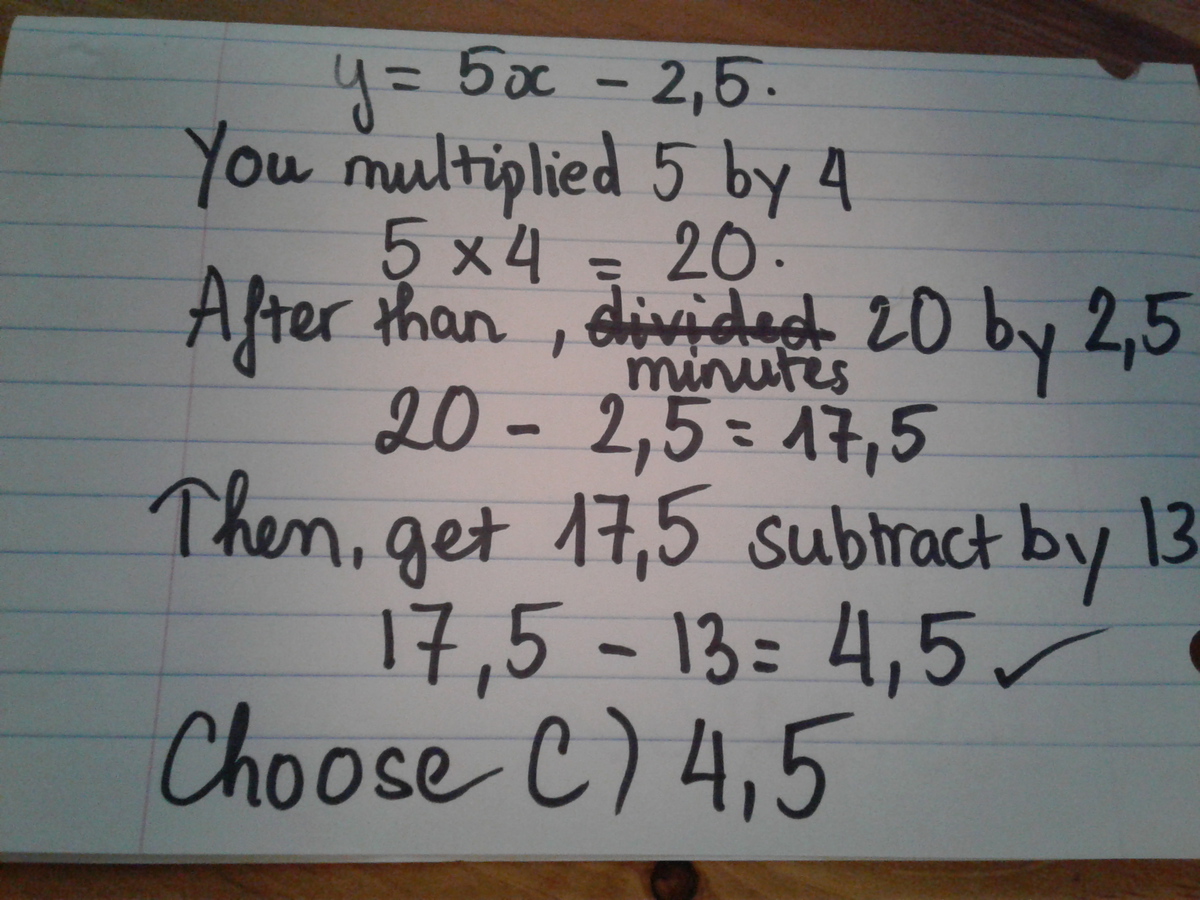 y = 5x - 2,5.
You multiplied 5 by 4
5 x 4 = 20.
After than, divided 20 by 2,5
minutes
20 - 2,5 = 17,5
Then, get 17,5 subtract by 13
17,5 - 13 = 4,5 ✓
Choose C) 4,5